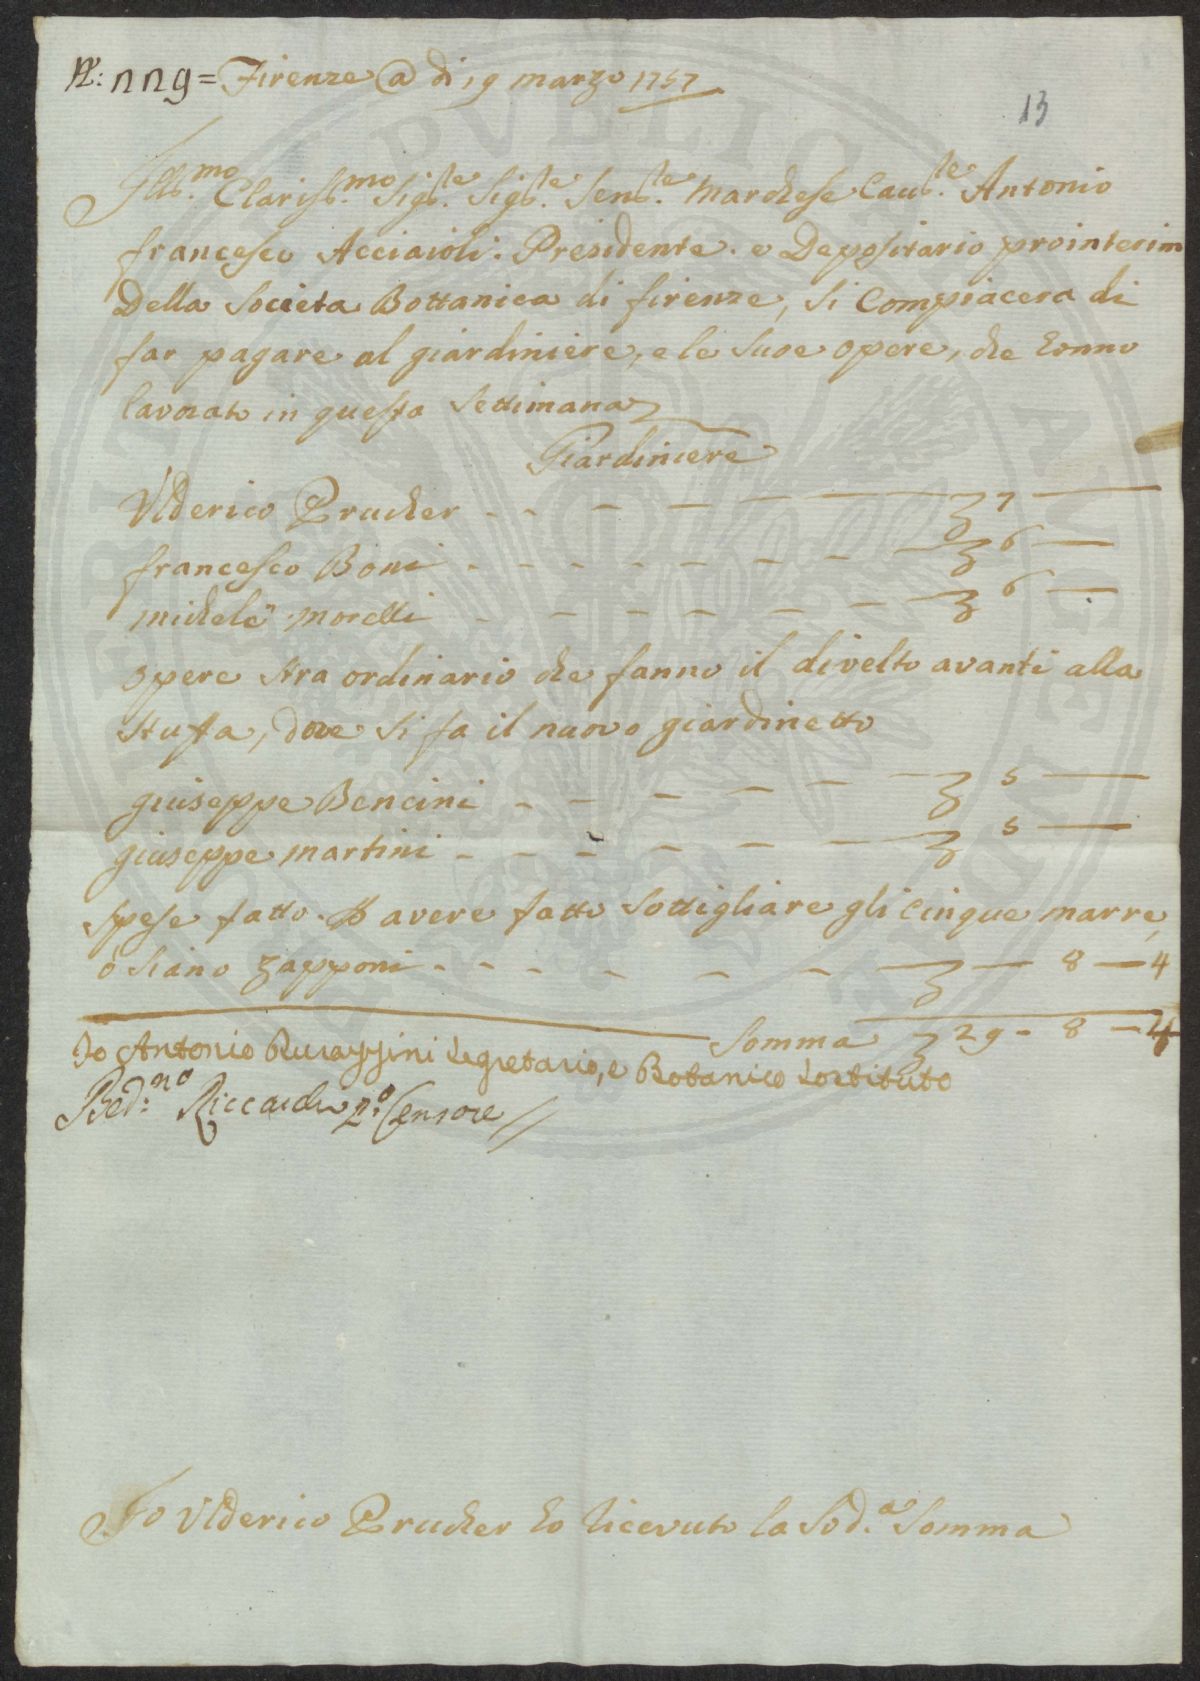 N.: nng = Firenze @ di 19 marzo 1757
13
Ill.mo Clariss.mo Sig.re Sig.re Sen.re Marchese Cau.re Antonio
francesco Acciaioli. Presidente. e Depositario prointerim
Della Societa Bottanica di firenze, si Compiacera di
far pagare al giardiniere, e le sue opere, che hanno
lavorato in questa settimana
Giardiniere
Ulderico Prucher - - - - - - 7 -
francesco Boni - - - - - - - 6 -
michele morelli - - - - - - 6 -
opere stra ordinario che fanno il divelto avanti alla
stufa, dove si fa il nuovo giardinetto
giuseppe Bencini - - - - - - 5 -
giuseppe martini - - - - - - 5 -
spese fatto. p avere fatto sottigliare gli cinque marre,
o siano zapponi - - - - - - - 8 - 4
Somma 29 - 8 - 4
Io Antonio Segretario, e Botanico Sostituto
Bed.no Riccardi 2.o Censore //
Io Ulderico Prucher ho ricevuto la sod.a somma